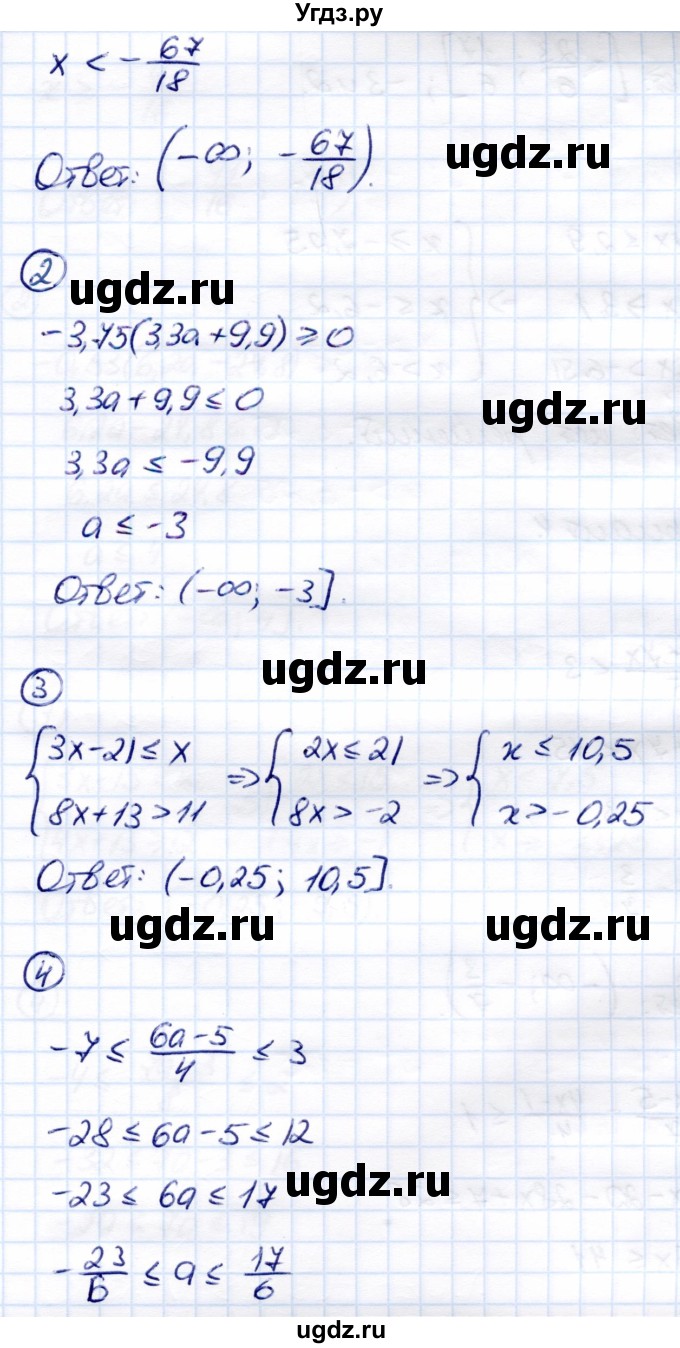 Угдз.ру
x < -67/18
Ответ: (-∞; -67/18).
ugdz.ru
2
ugdz.ru
-3,75(3,3a+9,9)⩾0
3,3a+9,9≤0
ugdz.ru
3,3a ≤ -9,9
a ≤ -3
Ответ: (-∞; -3].
ugdz.ru
3
{3x-21≤x 8x+13>11 => {2x≤21 8x>-2 => {x≤10,5 x>-0,25
Ответ: (-0,25; 10,5].
ugdz.ru ugdz.ru
4
-7 ≤ (6a-5)/4 ≤ 3
-28 ≤ 6a-5 ≤ 12
-23 ≤ 6a ≤ 17
ugdz.ru
-23/6 ≤ a ≤ 17/6
ugdz.ru